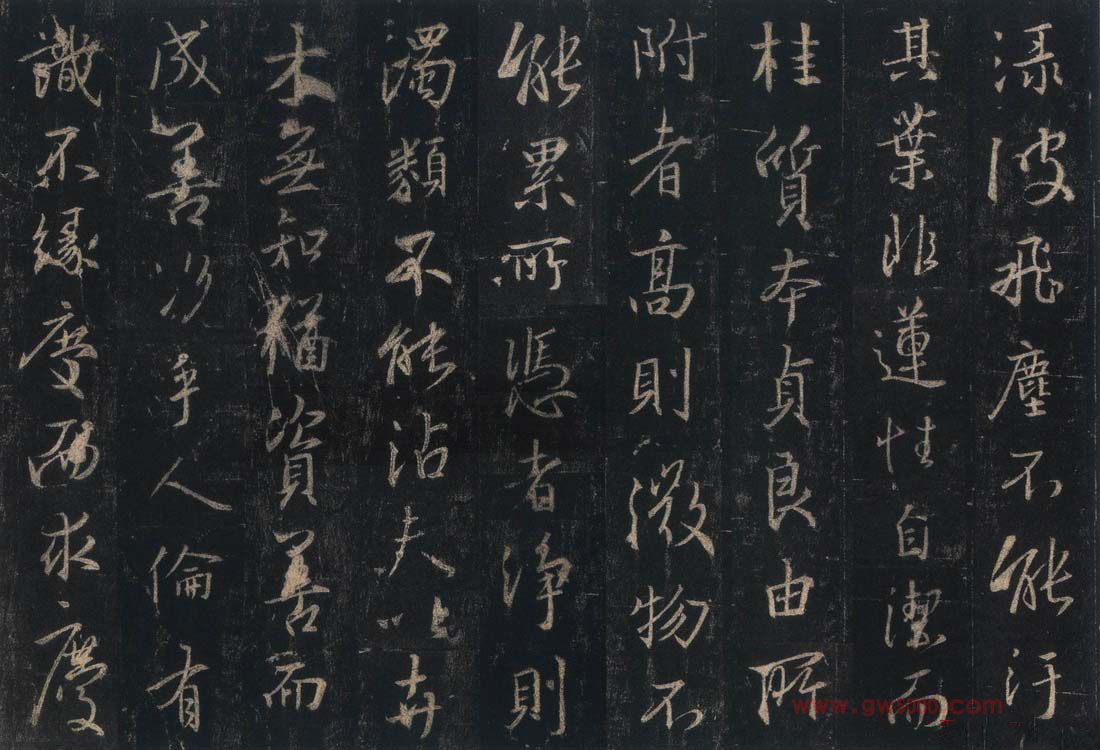 渌波飛塵不能汙
其葉非蓮性自潔而
桂質本貞良由所
附者高則微物不
能累所憑者淨則
濁類不能沾夫以卉
木無知猶資善而
成善況乎人倫有
識不緣慶而求慶